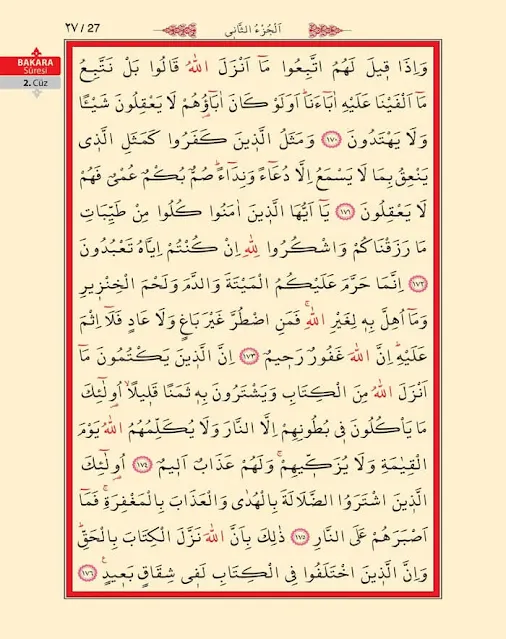 ٢٧ / 27
اَلْجُزْءُ الثَّانِي
BAKARA
Sûresi
2. Cüz
وَاِذَا ق۪يلَ لَهُمُ اتَّبِعُوا مَٓا اَنْزَلَ اللّٰهُ قَالُوا بَلْ نَتَّبِعُ
مَٓا اَلْفَيْنَا عَلَيْهِ اٰبَٓاءَنَاۜ اَوَلَوْ كَانَ اٰبَٓاؤُ۬هُمْ لَا يَعْقِلُونَ شَيْـًٔا
وَلَا يَهْتَدُونَ ﴿١٧٠﴾ وَمَثَلُ الَّذ۪ينَ كَفَرُوا كَمَثَلِ الَّذ۪ي
يَنْعِقُ بِمَا لَا يَسْمَعُ اِلَّا دُعَٓاءً وَنِدَٓاءًۜ صُمٌّ بُكْمٌ عُمْيٌ فَهُمْ
لَا يَعْقِلُونَ ﴿١٧١﴾ يَٓا اَيُّهَا الَّذ۪ينَ اٰمَنُوا كُلُوا مِنْ طَيِّبَاتِ
مَا رَزَقْنَاكُمْ وَاشْكُرُوا لِلّٰهِ اِنْ كُنْتُمْ اِيَّاهُ تَعْبُدُونَ
﴿١٧٢﴾ اِنَّمَا حَرَّمَ عَلَيْكُمُ الْمَيْتَةَ وَالدَّمَ وَلَحْمَ الْخِنْز۪يرِ
وَمَٓا اُهِلَّ بِه۪ لِغَيْرِ اللّٰهِۚ فَمَنِ اضْطُرَّ غَيْرَ بَاغٍ وَلَا عَادٍ فَلَٓا اِثْمَ
عَلَيْهِۜ اِنَّ اللّٰهَ غَفُورٌ رَح۪يمٌ ﴿١٧٣﴾ اِنَّ الَّذ۪ينَ يَكْتُمُونَ مَٓا
اَنْزَلَ اللّٰهُ مِنَ الْكِتَابِ وَيَشْتَرُونَ بِه۪ ثَمَنًا قَل۪يلًاۙ اُو۬لٰٓئِكَ
مَا يَأْكُلُونَ ف۪ي بُطُونِهِمْ اِلَّا النَّارَ وَلَا يُكَلِّمُهُمُ اللّٰهُ يَوْمَ
الْقِيٰمَةِ وَلَا يُزَكّ۪يهِمْۚ وَلَهُمْ عَذَابٌ اَل۪يمٌ ﴿١٧٤﴾ اُو۬لٰٓئِكَ
الَّذ۪ينَ اشْتَرَوُا الضَّلَالَةَ بِالْهُدٰى وَالْعَذَابَ بِالْمَغْفِرَةِۚ فَمَٓا
اَصْبَرَهُمْ عَلَى النَّارِ ﴿١٧٥﴾ ذٰلِكَ بِاَنَّ اللّٰهَ نَزَّلَ الْكِتَابَ بِالْحَقِّۜ
وَاِنَّ الَّذ۪ينَ اخْتَلَفُوا فِي الْكِتَابِ لَف۪ي شِقَاقٍ بَع۪يدٍ۟ ﴿١٧٦﴾